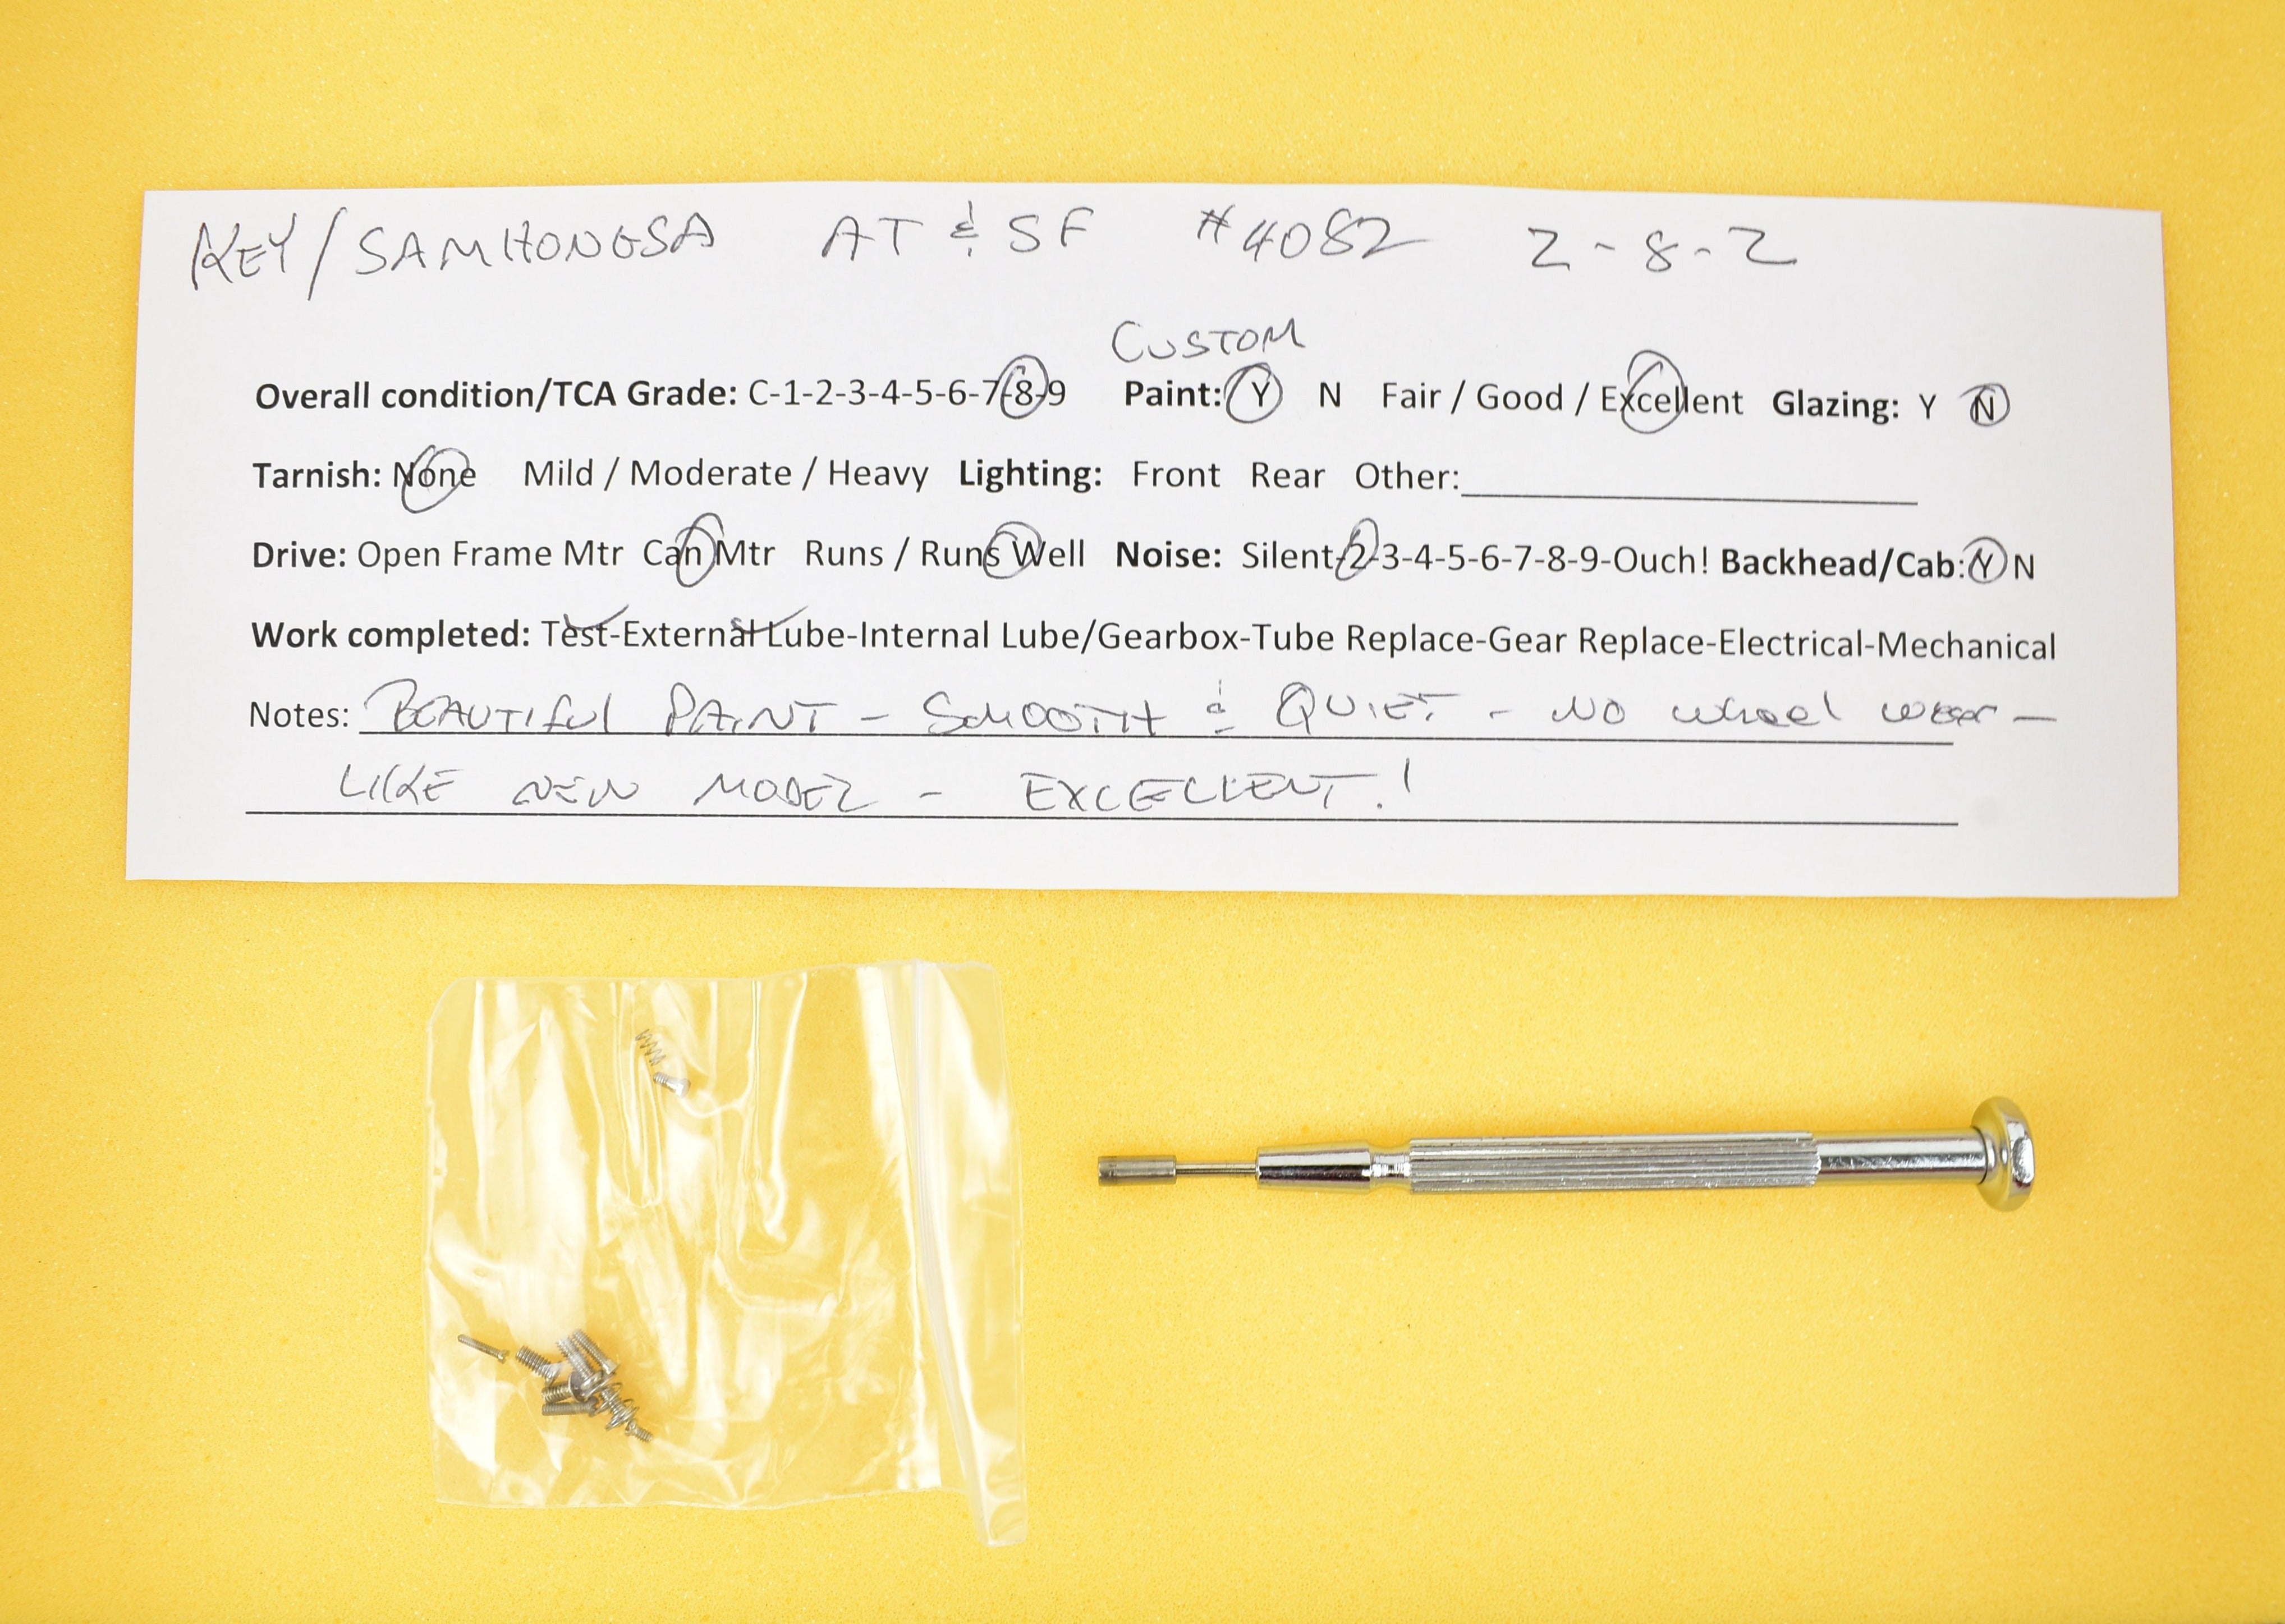 KEY/SAMHONGSA AT & SF #4082 2-8-2
CUSTOM
Overall condition/TCA Grade: C-1-2-3-4-5-6-7-8-9 Paint: Y N Fair / Good / Excellent Glazing: Y N
Tarnish: None Mild / Moderate / Heavy Lighting: Front Rear Other:
Drive: Open Frame Mtr Can Mtr Runs / Runs Well Noise: Silent-2-3-4-5-6-7-8-9-Ouch! Backhead/Cab: Y N
Work completed: Test-External Lube-Internal Lube/Gearbox-Tube Replace-Gear Replace-Electrical-Mechanical
Notes: BEAUTIFUL PAINT - SMOOTH & QUIET - NO wheel wear -
LIKE NEW MODEL - EXCELLENT!